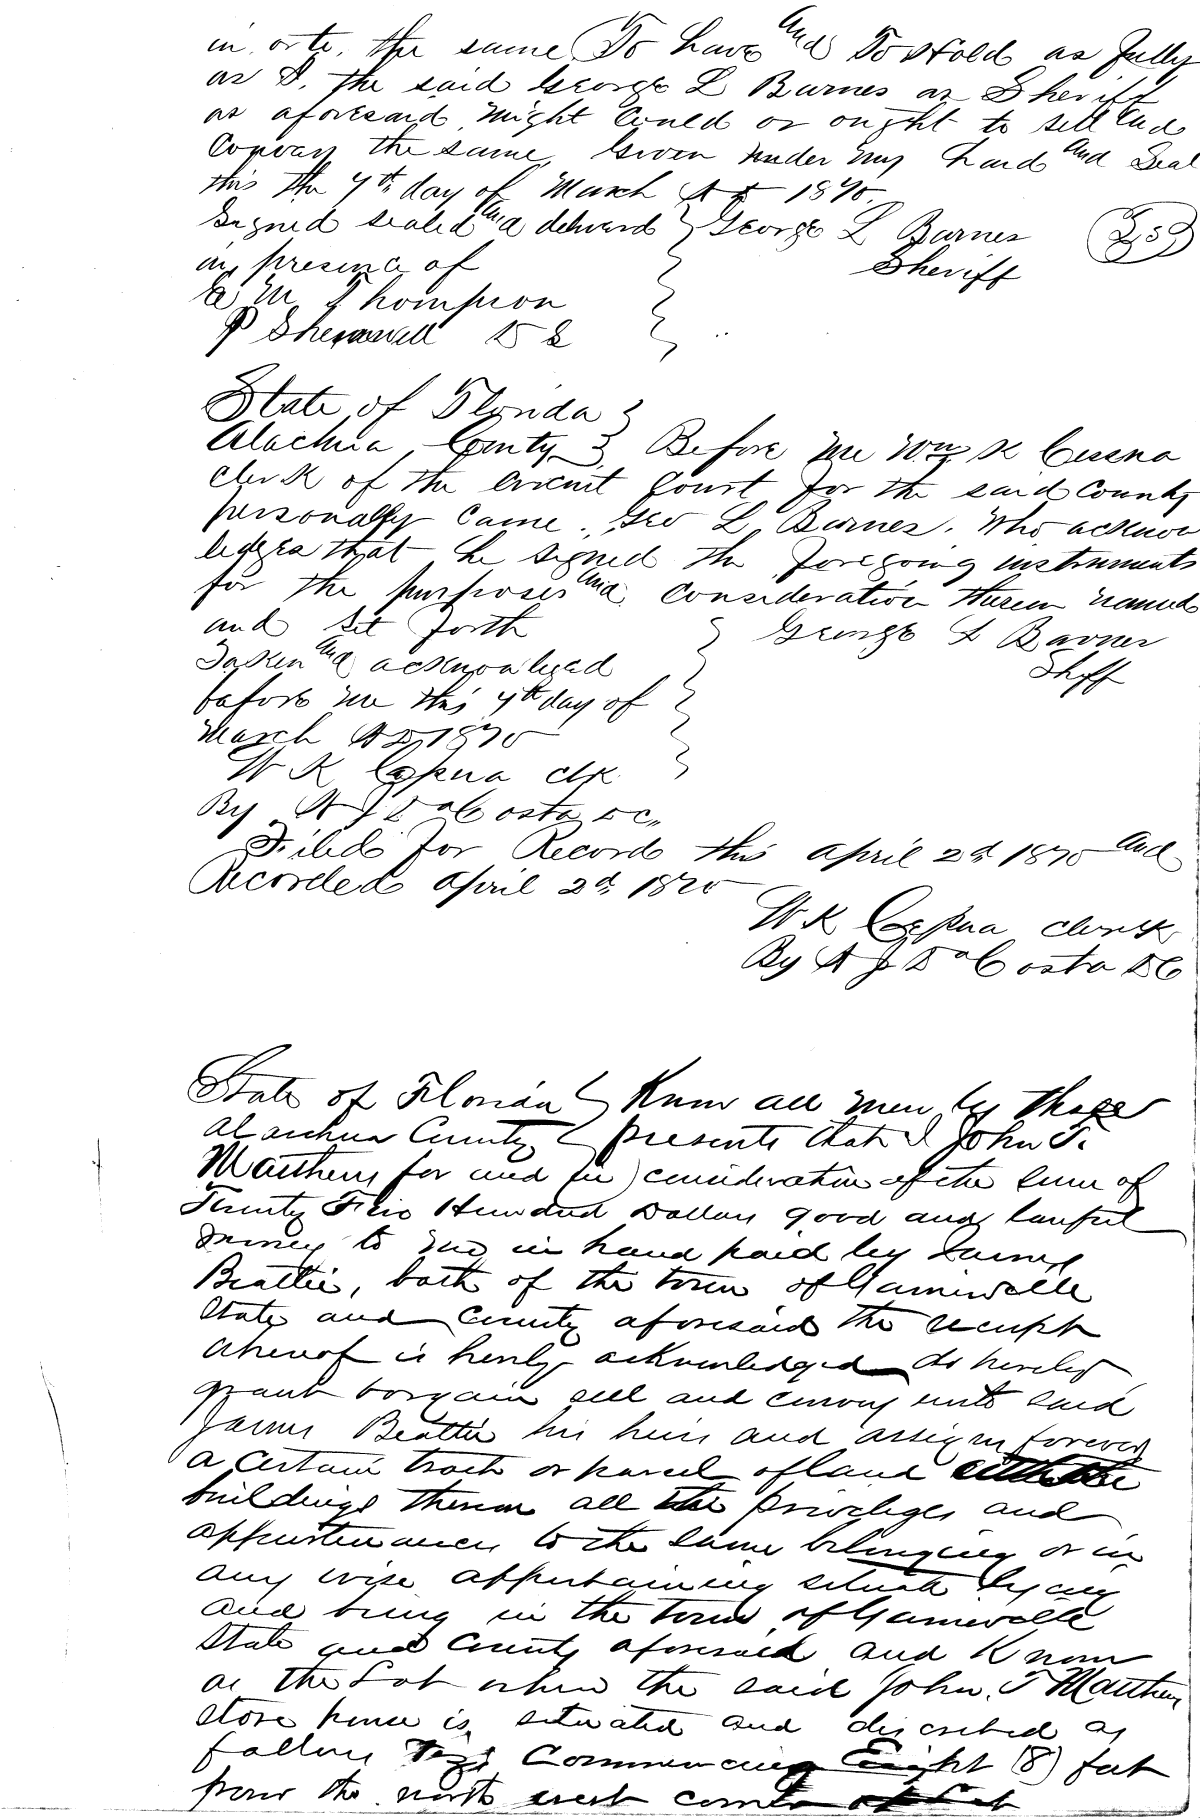 in or to the same To have and To Hold as fully
as I, the said George L Barnes as Sheriff
as aforesaid might Could or ought to sell and
Convey the same, Given under my hand and Seal
this the 7th day of March AD 1870.
Signed sealed and delivered } George L Barnes
in presence of Sheriff
M Thompson
P Sherrwell D S
State of Florida }
Alachua County } Before me Wm K Cessna
clerk of the circuit Court for the said County
personally came Geo L Barnes. Who acknow
ledges that he signed the foregoing instruments
for the purposes and consideration therein named
and set forth } George L Barnes
Taken and acknowleged Shff
before me this 7th day of
March AD 1870
W K Cessna clk
By A J DaCosta DC,,
Filed for Record this april 2d 1870 and
Recorded april 2d, 1870
W K Cessna clerk
By A J DaCosta DC
State of Florida } Know all men by these
Alachua County } presents that I John T.
Matthews for and in consideration of the sum of
Twenty Five Hundred Dollars good and lawful
money to me in hand paid by James
Beattie, both of the town of Gainesville
State and County aforesaid the receipt
whereof is hereby acknowledged do hereby
grant bargain sell and convey unto said
James Beattie his heirs and assigns forever
a certain tract or parcel of land
buildings thereon all the privileges and
appurtenances to the same belonging or in
any wise appertaining situate lying
and being in the town of Gainesville
State and County aforesaid and Known
as the Lot where the said John. T Matthews
store house is situated and discribed as
follows Commencing Eight (8) feet
from the north west corner of Lot